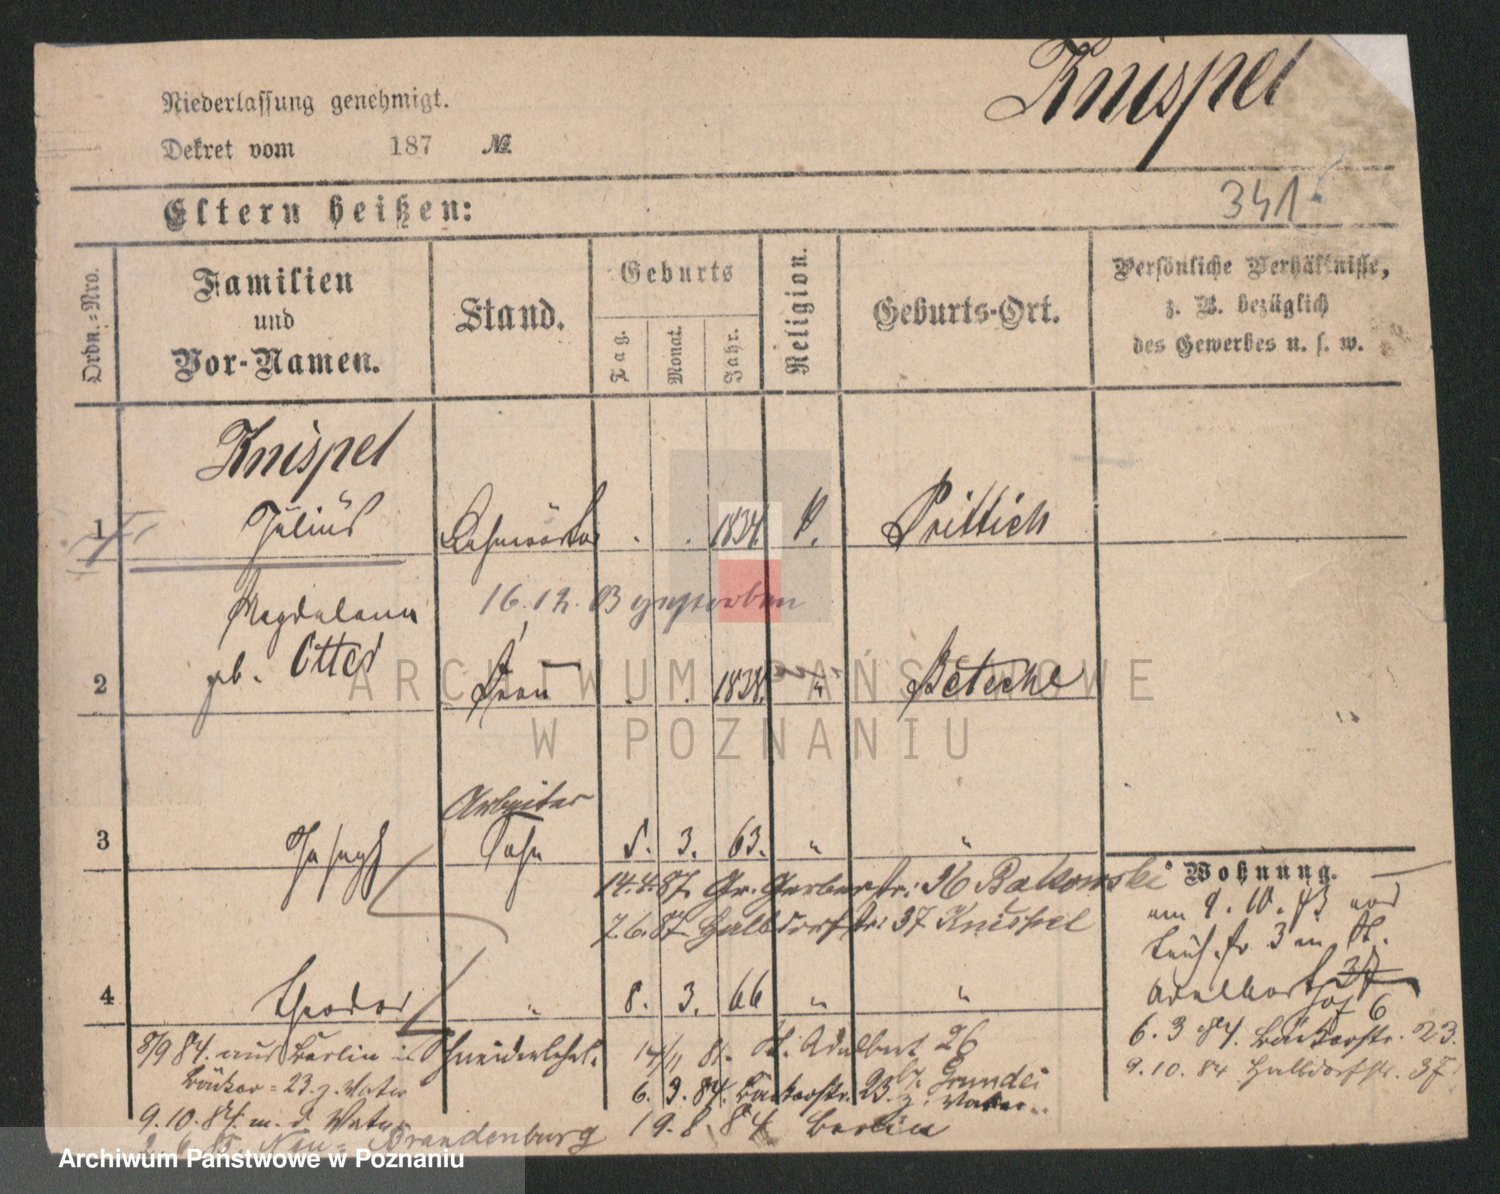 Knispel
Niederlassung genehmigt.
Dekret vom 187 №
341.
Eltern heißen:
Ordn.-Nro.
Familien und Vor-Namen.
Stand.
Geburts
Tag.
Monat.
Jahr.
Religion.
Geburts-Ort.
Persönliche Verhältnisse,
z. B. bezüglich
des Gewerbes u. s. w.
Knispel
1 Julius 1834. Prittisch
Magdalena 16. 12. 83 gestorben
geb. Otto
2 Frau 1834. " Betsche
Arbeiter
3 Joseph Sohn 8. 3. 63. " "
14.4.87. Gr. Gerberstr: 36 Bakowski
7.6.87. Halbdorfstr: 37 Knispel
4 Theodor " 8. 3. 66 " "
Wohnung.
am 9. 10. 83
3
Adalbert
6
6. 3 84. Bäckerstr. 23.
9. 10. 84 Halbdorfstr. 37
8/9 84. aus Berlin Schneiderlehrl.
Bäcker = 23 z. Vater
9. 10. 84. m. d. Vater
Neu = Brandenburg
14/11 81. St. Adalbert 26
6. 3. 84. Bäckerstr. 23. z. Vater
19. 8. 84 Berlin
ARCHIWUM PAŃSTWOWE
W POZNANIU
Archiwum Państwowe w Poznaniu